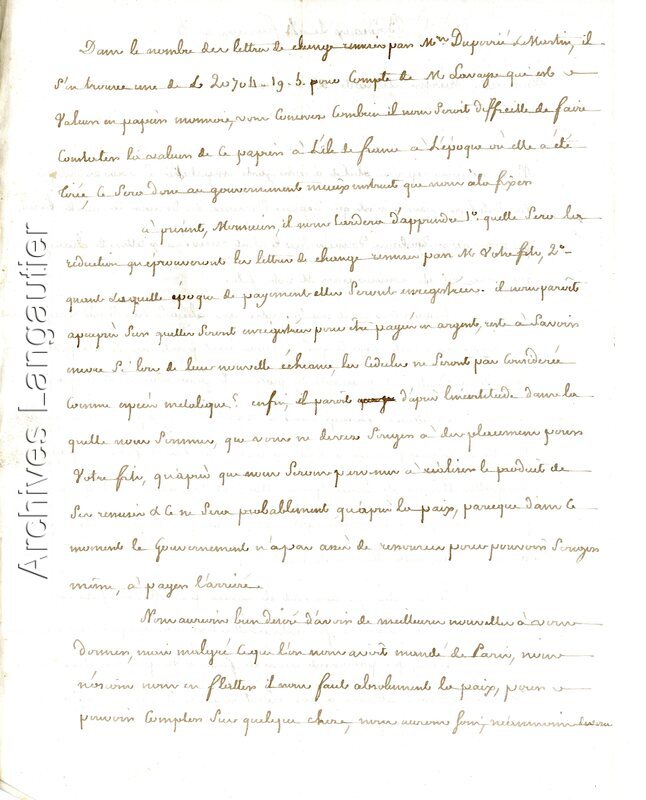 Dans le nombre des lettres de change remises par Mrs Duperrié & Martin, il
s'en trouve une de £ 20704-19-5. pour Compte de M Lavayne qui est
Valeur en papier monnoie, vous Concevez Combien il nous seroit difficille de faire
Constater la valeur de Ce papier à l'ile de france à l'époque où elle a été
tirée, Ce Sera donc au gouvernement mieux instruit que nous à la fixer
à présent, Messieurs, il nous tardera d'apprendre 1°. quelle Sera la
réduction qu'éprouveront les lettres de change remises par M Votre fils, 2°.
quant à laquelle époque de payement elles Seront enregistrées. il nous paroit
qu'elles Seront enregistrées pour être payées en argent, reste à Savoir
encore Si lors de leur nouvelle échéance, les Cédules ne Seront pas Considerées
Comme espèces métalique? enfin, il paroit d'après l'incertitude dans la
quelle nous Sommes, que vous ne devez Songer à des placemens pour
Votre fils, qu'après que nous Serons parvenus à réaliser le produit de
Ses remises & Ce ne Sera probablement qu'après la paix, parceque dans Ce
moment le Gouvernement n'a pas assés de ressources pour pouvoir Songer
même, à payer l'arriéré.
Nous aurions bien désiré d'avoir de meilleures nouvelles à vous
donner, mais malgré Ce que l'on nous avoit mandé de Paris, nous
n'osions nous en flatter il nous faut absolument la paix, pour
pouvoir Compter Sur quelque chose, nous aurons soin, néanmoins
Archives Langautier